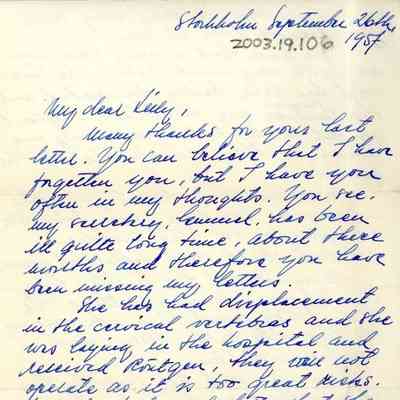 Stockholm September 26th
2003.19.106 1957
My dear
many thanks for your last
letter. You can believe that I have
forgotten you, but I have you
often in my thoughts. You see,
my secretary, has been
ill quite long time, about three
months, and therefore you have
been missing my letters
She has had displacement
in the cervical vertebras and she
was laying in the hospital and
received Röntgen, they will not
operate as it is too great risks.